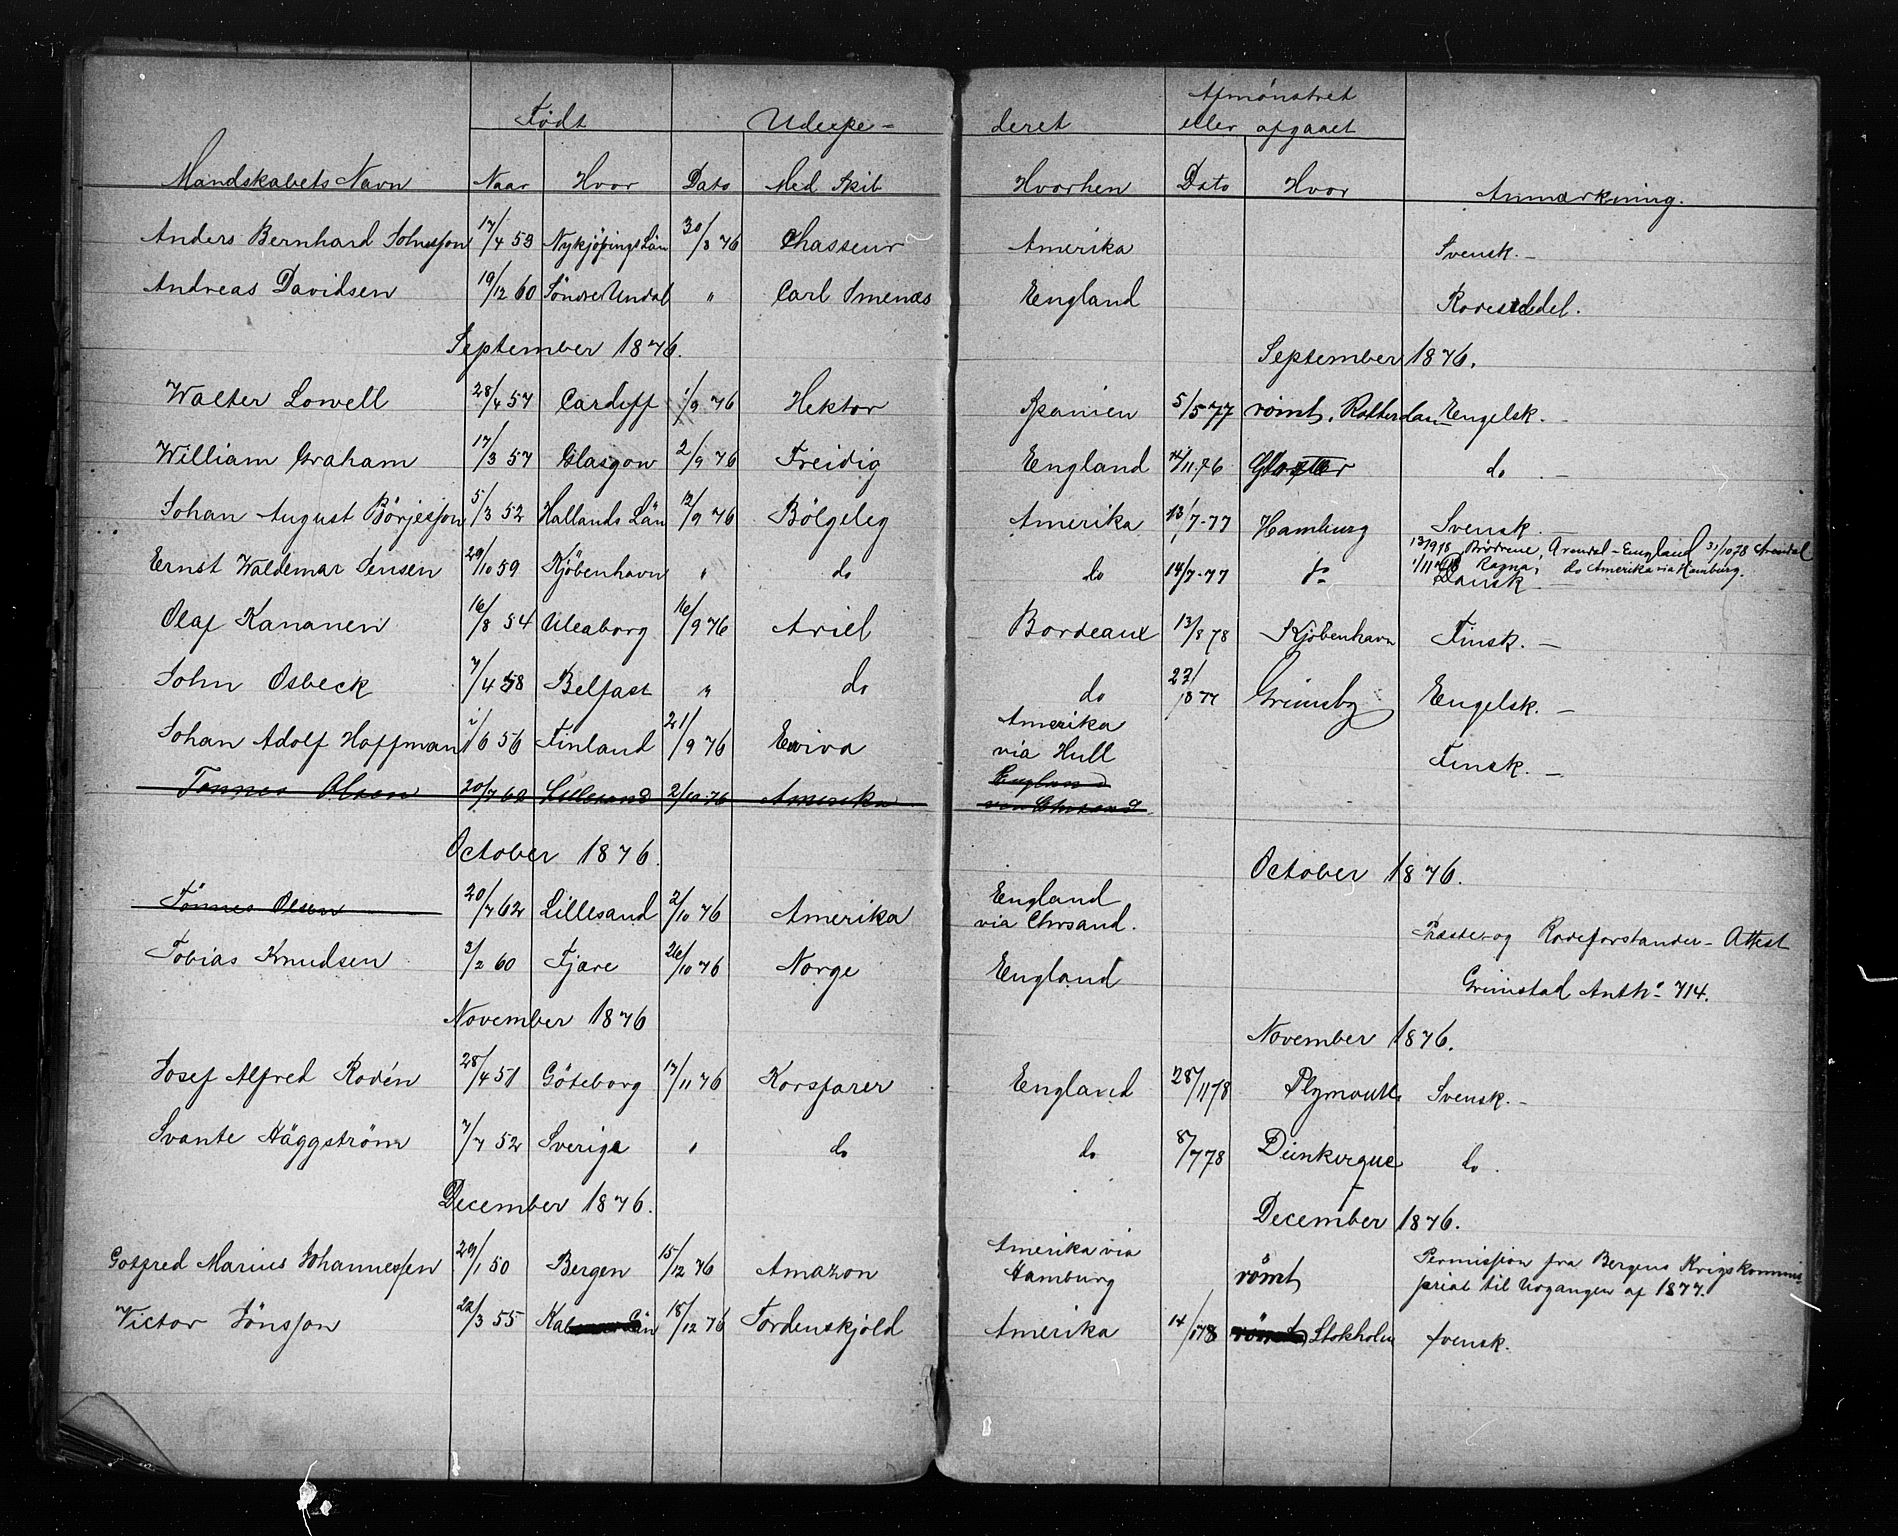 Født Udexpe- deret Afmønstret
eller afgaaet
Mandskabets Navn Naar Hvor Dato Med Skib Hvorhen Dato Hvor Anmærkning.
Anders Bernhard Johnsson 17/4 53 Nykjöpings Län 30/8 76 Chasseur Amerika Svensk. -
Andreas Davidsen 19/12 60 Søndre Undal " Carl Smenæs England Rodeseddel.
September 1876. September 1876.
Walter Lowell 28/4 57 Cardiff 1/9 76 Hektor Spanien 5/5 77 rømt, Rotterdam Engelsk. -
William Graham 17/3 57 Glasgow 2/9 76 Freidig England 14/11 76 Gloster do -
Johan August Börjesson 5/3 52 Hallands Län 12/9 76 Bölgeleg Amerika 13/7-77 Hamburg Svensk. -
13/9 78 Brødrene, Arendal - England 31/10 78 Arendal
Ernst Waldemar Jensen 29/10 59 Kjöbenhavn " do do 14/7-77 do Dansk -
1/11 78 Ragna, do Amerika via Hamburg.
Olaf Kananen 16/8 54 Uleaborg 16/9 76 Ariel Bordeaux 13/8 78 Kjöbenhavn Finsk. -
John Osbeck 7/4 58 Belfast " do do 23/8 77 Grimsby Engelsk. -
Johan Adolf Hoffman 1/6 56 Finland 21/9 76 Eviva Amerika
via Hull Finsk. -
Tønnes Olsen 20/7 62 Lillesand 2/10 76 Amerika England
via Chrsand
October 1876. October 1876.
Tønnes Olsen 20/7 62 Lillesand 2/10 76 Amerika England
via Chrsand.
Præste- og Rodeforstander- Attest
Tobias Knudsen 3/2 60 Fjære 26/10 76 Norge England Grimstad Anth: 714.
November 1876 November 1876.
Josef Alfred Rodén 28/4 51 Göteborg 17/11 76 Korsfarer England 28/11 78 Plymouth Svensk. -
Svante Häggström 7/7 52 Sverige " do do 8/7 78 Dünkerque do.
December 1876. December 1876.
Gotfred Marius Johannessen 29/1 50 Bergen 15/12 76 Amazon Amerika via
Hamburg rømt Permission fra Bergens Krigskommis-
sariat til Udgangen af 1877.
Victor Jönsson 22/3 55 18/12 76 Tordenskjold Amerika 14/1 78 rømt, Stokholm svensk.